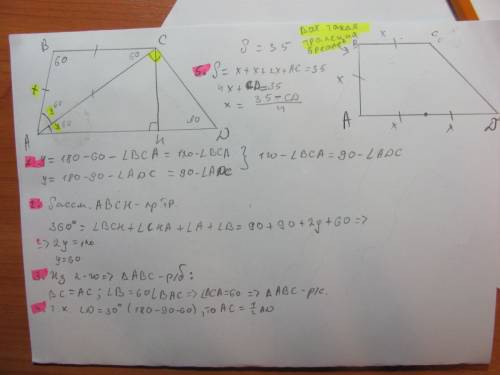 B
C
60
60
x
60
60
30
A
H
D
S = 35
5. S = x + x + 2x + AC = 35
4x + CD = 35
x = 35 - CD / 4
Вот такая
трапеция
B
x
C
x
A
x
x
D
1. y = 180 - 60 - ∠BCA = 120 - ∠BCA
y = 180 - 90 - ∠ADC = 90 - ∠ADC
} 120 - ∠BCA = 90 - ∠ADC
2. Рассм. ABCH - пр. тр.
360° = ∠BCH + ∠CHA + ∠A + ∠B = 90 + 90 + 2y + 60 =>
=> 2y = 120
y = 60
3. Из 2-го => ΔABC - р/б:
BC = AC; ∠B = 60 ∠BAC => ∠BCA = 60 => ΔABC - р/с.
4. Т.к. ∠D = 30° (180 - 90 - 60), то AC = 1/2 AD